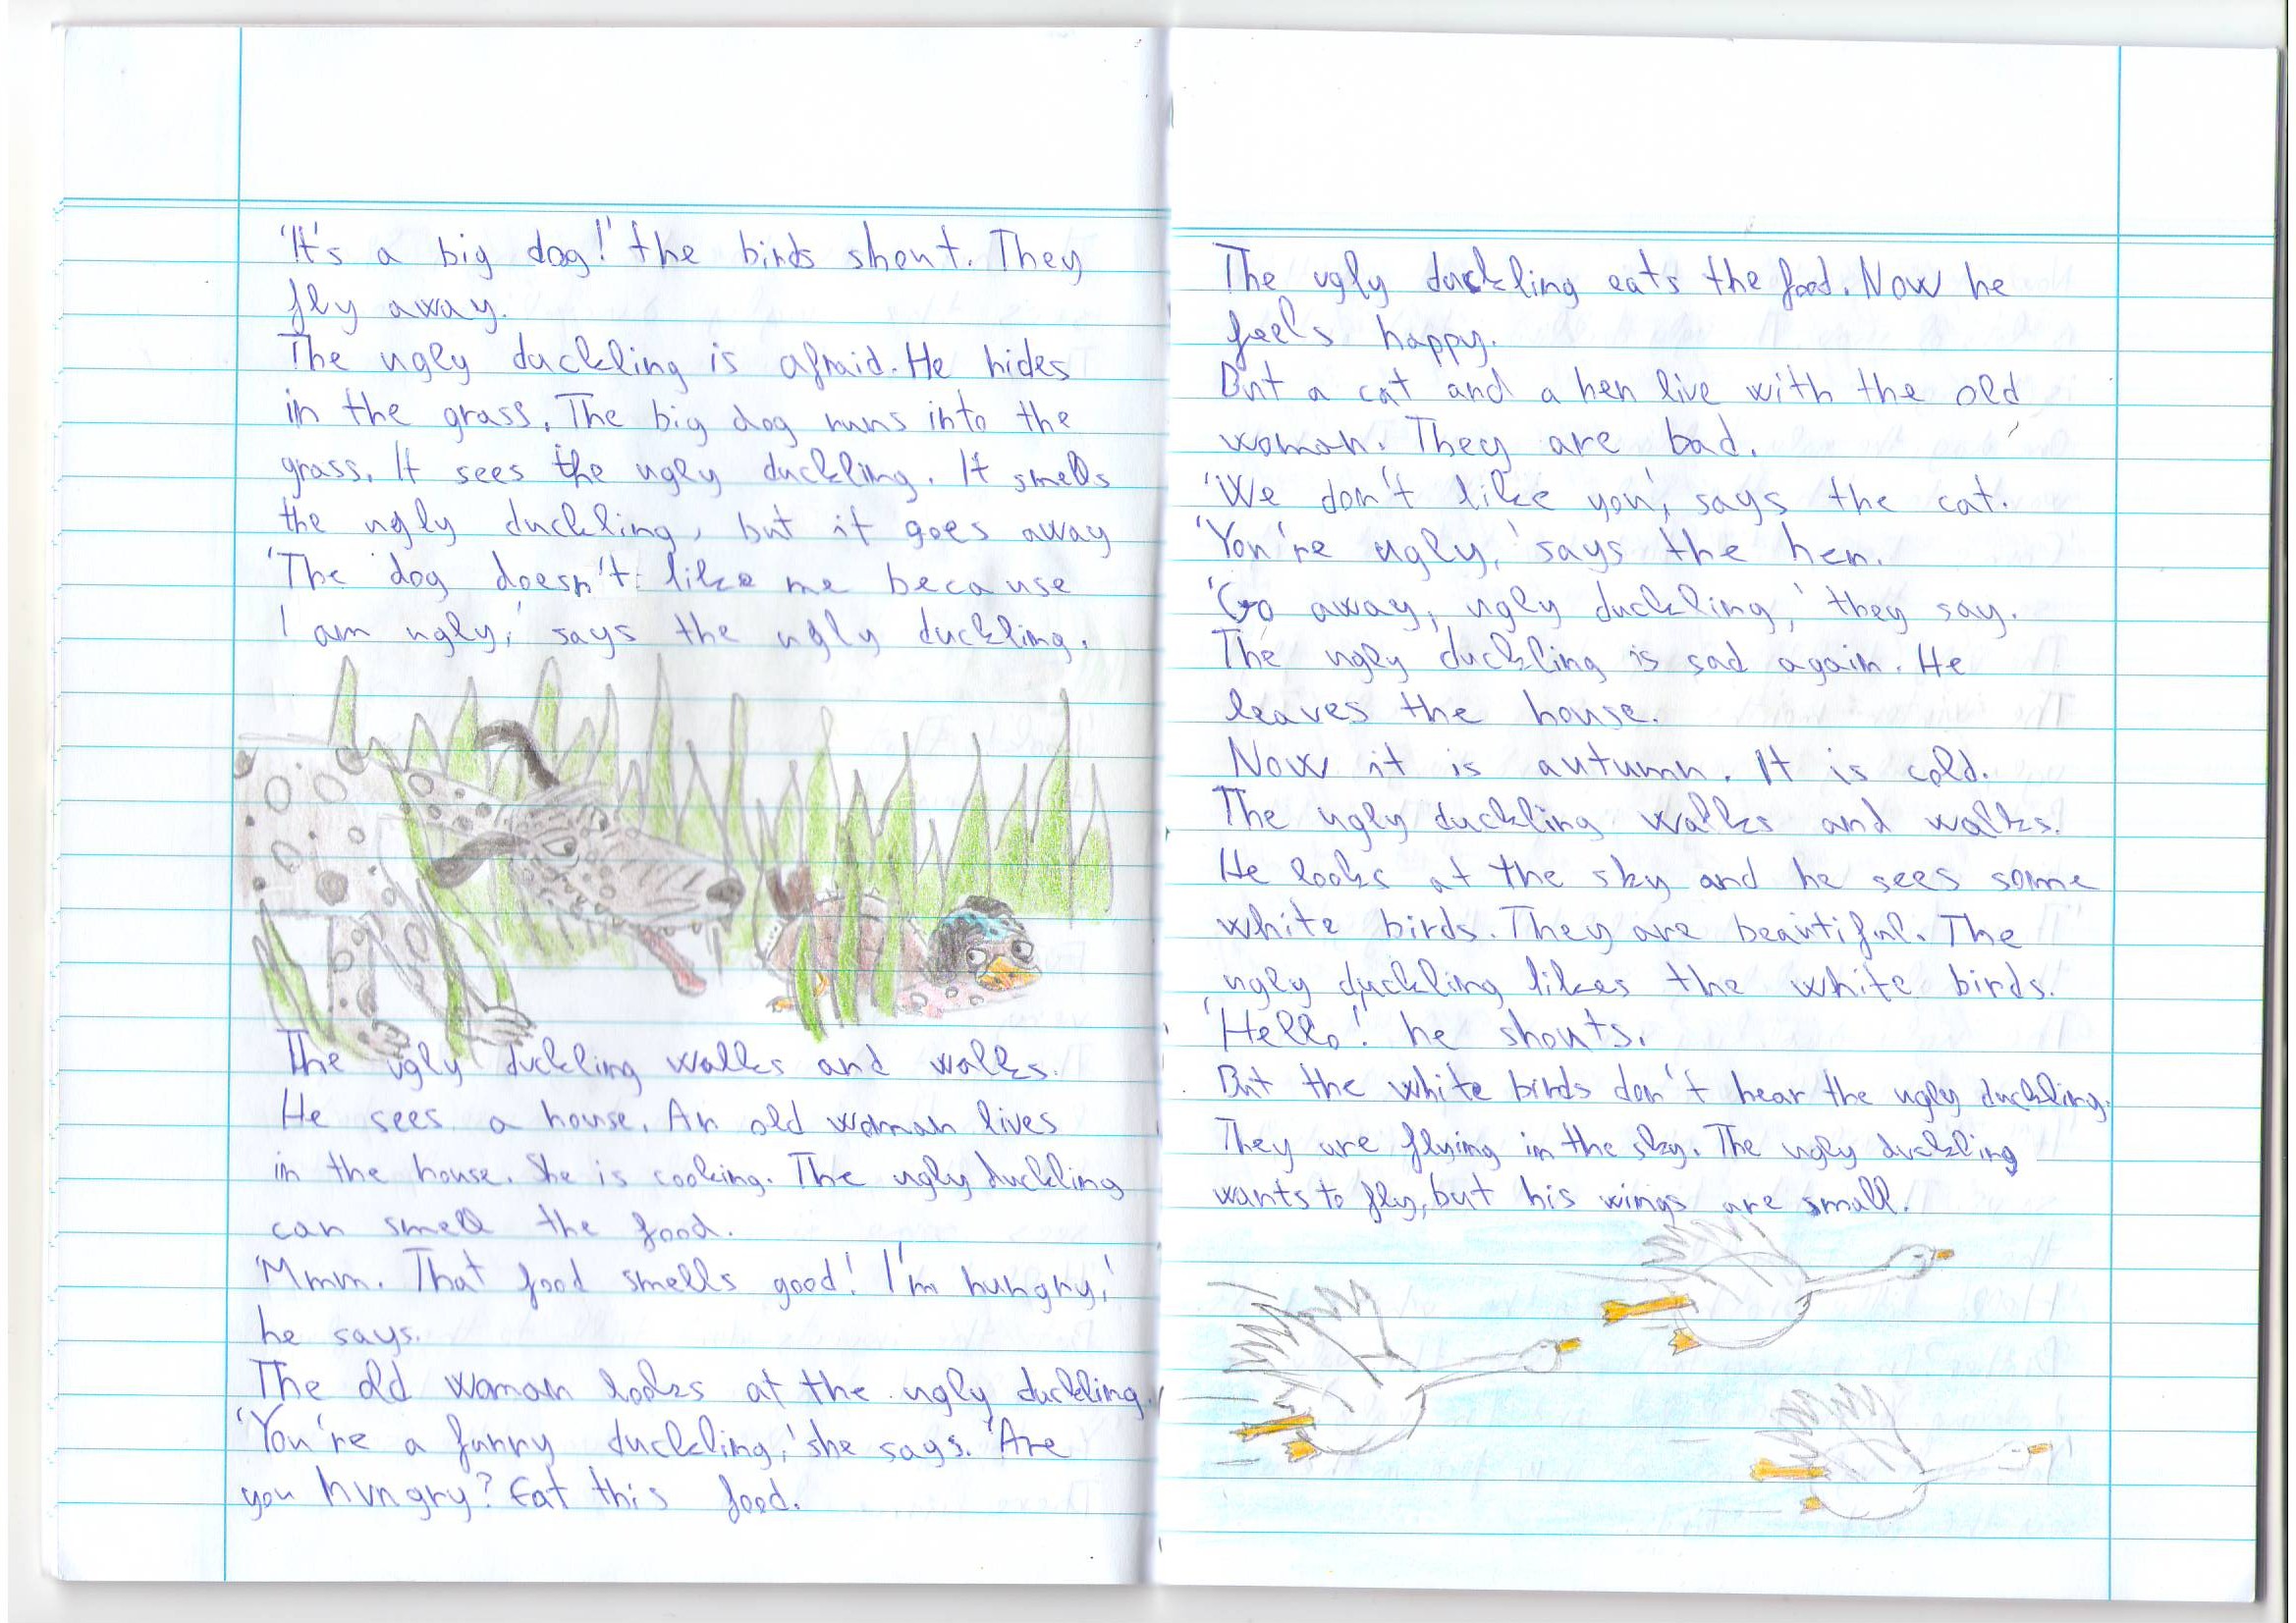 'It's a big dog!' the birds shout. They
fly away.
The ugly duckling is afraid. He hides
in the grass. The big dog runs into the
grass. It sees the ugly duckling. It smells
the ugly duckling, but it goes away
'The dog doesn't like me because
I am ugly,' says the ugly duckling.
The ugly duckling walks and walks.
He sees a house. An old woman lives
in the house. She is cooking. The ugly duckling
can smell the food.
'Mmm. That food smells good! I'm hungry,'
he says.
The old woman looks at the ugly duckling.
'You're a funny duckling,' she says. 'Are
you hungry? Eat this food.
The ugly duckling eats the food. Now he
feels happy.
But a cat and a hen live with the old
woman. They are bad.
'We don't like you', says the cat.
'You're ugly,' says the hen.
'Go away, ugly duckling,' they say.
The ugly duckling is sad again. He
leaves the house.
Now it is autumn. It is cold.
The ugly duckling walks and walks.
He looks at the sky and he sees some
white birds. They are beautiful. The
ugly duckling likes the white birds.
'Hello!' he shouts.
But the white birds don't hear the ugly duckling.
They are flying in the sky. The ugly duckling
wants to fly, but his wings are small.